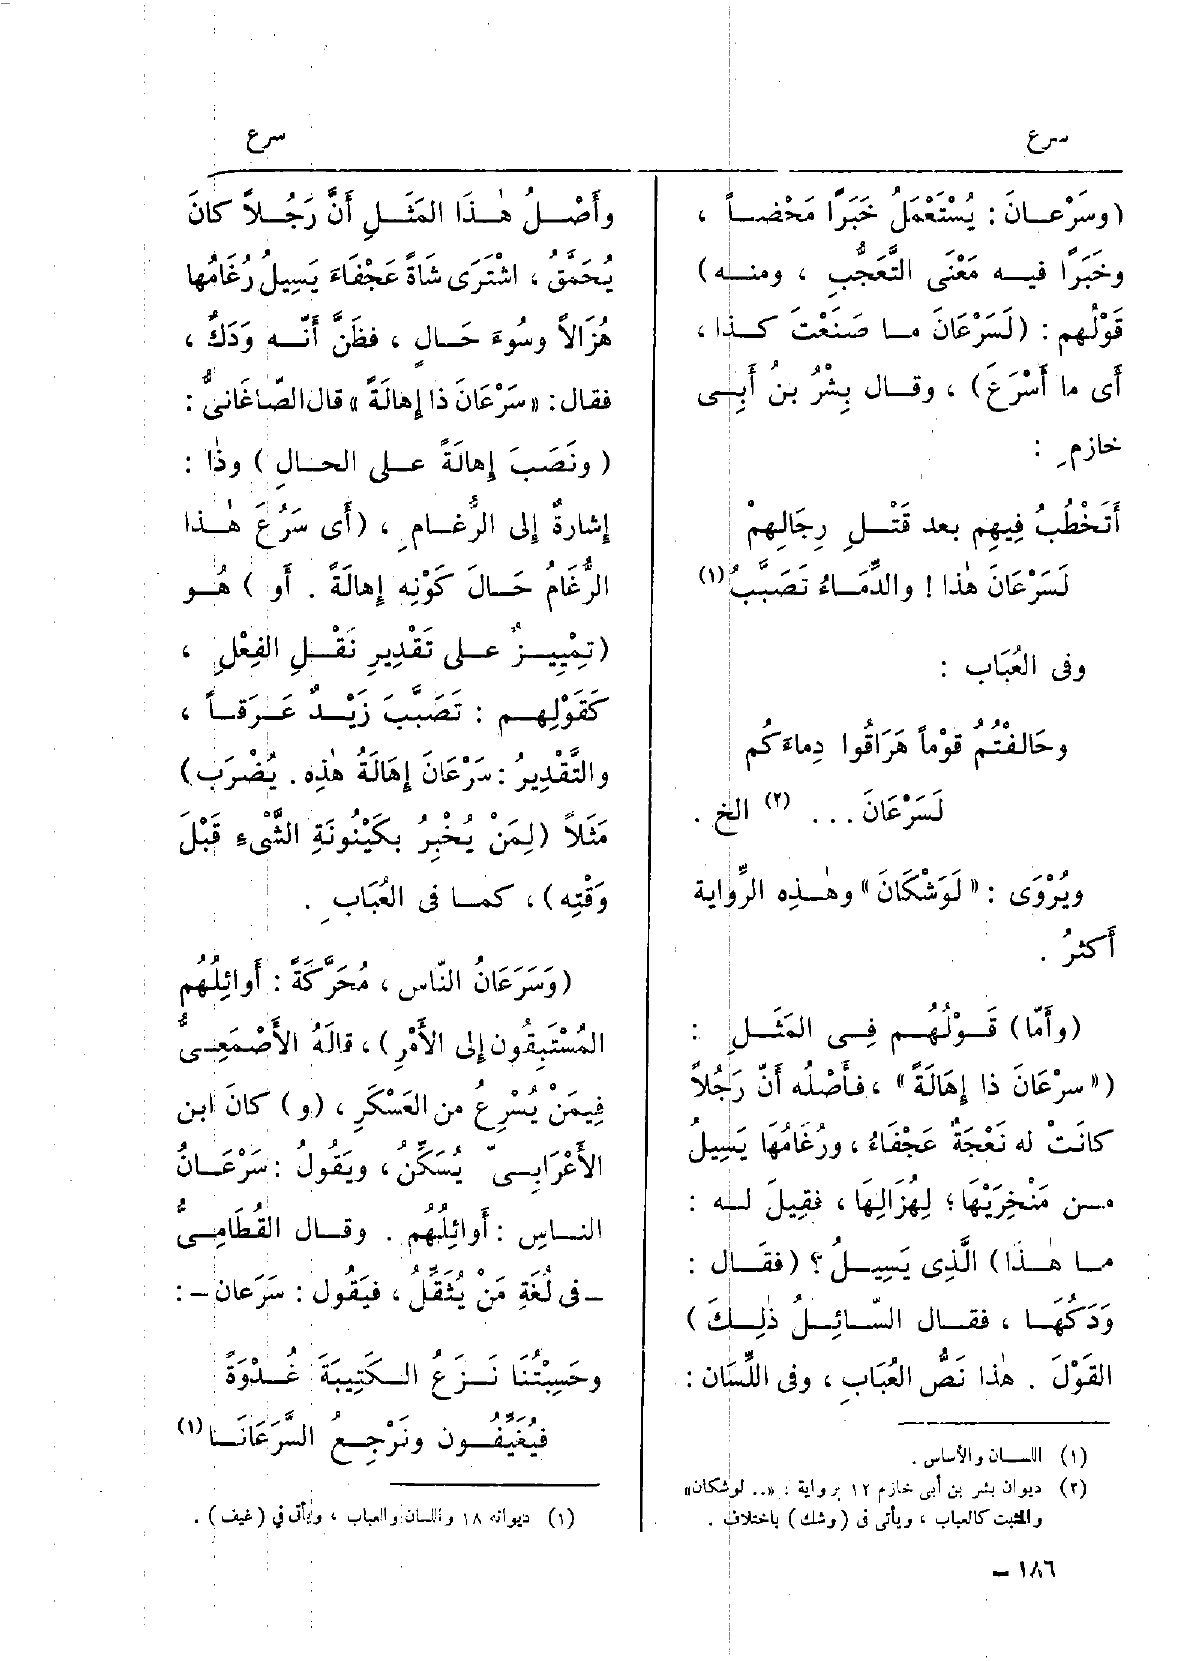 سرع
سرع
(وسَرْعَانَ : يُسْتَعْمَلُ خَبَرًا مَحْضاً ،
وخَبَرًا فيه مَعْنَى التَّعَجُّبِ ، ومنه)
قَوْلُهم : (لَسَرْعَانَ ما صَنَعْتَ كذا ،
أَى ما أَسْرَعَ) ، وقال بِشْرُ بنُ أَبِى
خازمٍ :
أَتَخْطُبُ فِيهِم بعد قَتْلِ رِجَالِهِمْ
لَسَرْعَانَ هٰذا ! والدِّمَاءُ تَصَبَّبُ (١)
وفى العُبَاب :
وحَالَفْتُمُ قَوْماً هَرَاقُوا دِماءَكُم
لَسَرْعَانَ ... (٢) الخ .
ويُرْوَى : « لَوَشْكَانَ » وهٰذِه الرِّواية
أَكثرُ .
(وأَمّا) قَوْلُهُم فِى المَثَلِ :
(« سرْعَانَ ذا إِهَالَةً » ، فأَصْلُه أَنّ رَجُلاً
كانَتْ له نَعْجَةٌ عَجْفَاءُ ، ورُغَامُها يَسِيلُ
من مَنْخِرَيْهَا ؛ لِهُزَالِهَا ، فقِيلَ له :
ما هٰذَا) الَّذِى يَسِيلُ ؟ (فقَال :
وَدَكُهَا ، فقال السّائِلُ ذٰلِكَ)
القَوْلَ . هٰذا نَصُّ العُبَابِ ، وفى اللِّسَان :
(١) اللسان والأساس .
(٢) ديوان بشر بن أبى خازم ١٢ برواية : « .. لوشكان »
والمثبت كالعباب ، ويأتى فى (وشك) باختلاف .
وأَصْلُ هٰذَا المَثَلِ أَنَّ رَجُلاً كانَ
يُحَمَّقُ ، اشْتَرَى شَاةً عَجْفَاءَ يَسِيلُ رُغَامُها
هُزَالاً وسُوءَ حَالٍ ، فظَنَّ أَنَّه وَدَكٌ ،
فقال : « سَرْعَانَ ذا إِهالَةً » قال الصّاغَانىُّ :
( ونَصَبَ إِهالَةً على الحالِ ) وذَا :
إِشارةٌ إِلى الرُّغَامِ ، (أَى سَرُعَ هٰذا
الرُّغَامُ حَالَ كَوْنِه إِهالَةً . أَو ) هُو
(تَمْيِيزٌ على تَقْدِيرِ نَقْلِ الفِعْلِ ،
كَقَوْلِهِم : تَصَبَّبَ زَيْدٌ عَرَقاً ،
والتَّقْدِيرُ : سَرْعَانَ إِهَالَةُ هٰذِه . يُضْرَب)
مَثَلاً (لِمَنْ يُخْبِرُ بكَيْنُونَةِ الشَّىءِ قَبْلَ
وَقْتِه) ، كما فى العُبَابِ .
(وَسَرَعَانُ النّاس ، مُحَرَّكَةً : أَوائِلُهُم
المُسْتَبِقُون إِلى الأَمْرِ) ، قالَهُ الأَصْمَعِىُّ
فِيمَنْ يُسْرِعُ من العَسْكَرِ ، (و) كانَ ابن
الأَعْرَابِىّ يُسَكِّن ، ويَقُولُ : سَرْعَانُ
الناسِ : أَوائِلُهم . وقال القُطَامِىُّ
– فى لُغَةِ مَنْ يُثَقِّلُ ، فيَقُول : سَرَعان – :
وحَسِبْتُنَا نَزَعُ الكَتِيبَةَ غُدْوَةً
فيُغَيِّفُون ونَرْجِعُ السَّرَعَانَا (١)
(١) ديوانه ١٨ واللسان والعباب ، ويأتى في (غيف) .
١٨٦ –